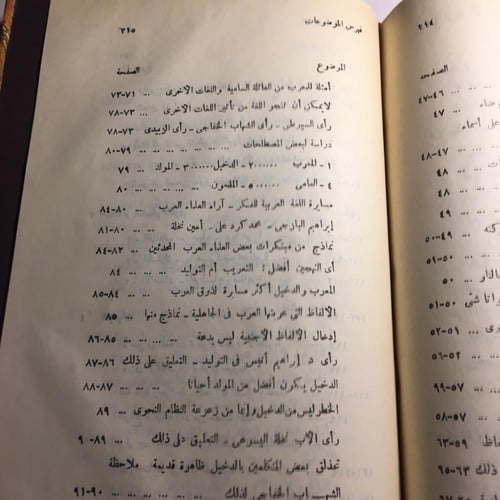 فهرس الموضوعات ٢١٥
الموضوع الصفحة
أمثلة للمعرب من العائلة السامية واللغات الأخرى ... ٧١-٧٣
لا يمكن أن تتحجر اللغة من تأثير اللغات الأخرى ... ٧٣-٧٨
رأى السيوطى ـ رأى الشهاب الخفاجى ـ رأى الزبيدى ٧٣-٧٨
دراسة لبعض المصطلحات ... ... ... ... ... ٧٩-٨٠
١ ـ المعرب ٢٠٠٠٠٠ ـ الدخيل ٣٠٠٠٠٠ ـ المولد ... ٧٩
٤ ـ العامى ٥٠٠٠٠٠ ـ الملحون ... ... ... ... ٨٠
مسايرة اللغة العربية للفكر ـ آراء العلماء العرب ٨٠-٨٤
إبراهيم اليازجى ـ محمد كرد على ـ أمين نخلة ٨٠-٨١
نماذج من مبتكرات بعض العلماء العرب المحدثين ٨٢-٨٤
أى النهجين أفضل : التعريب أم التوليد ... ... ٨٤
المعرب والدخيل أكثر مسايرة لذوق العرب ٨٤-٨٥
الألفاظ التى عربتها العرب فى الجاهلية ـ نماذج منها ٨٥
إدخال الألفاظ الأجنبية ليس بدعة ... ... ٨٥-٨٦
رأى د إبراهيم أنيس فى التوليد ـ التعليق على ذلك ٨٦-٨٧
الدخيل يكون أفضل من المولد أحيانا ... ... ٨٧-٨٨
الخطر ليس من الدخيل وإنما من زعزعة النظام النحوى ... ٨٩
رأى الأب نخلة اليسوعى ـ التعليق على ذلك ... ٨٩-٩٠
تحذلق بعض المتكلمين بالدخيل ظاهرة قديمة ملاحظة
الشهاب الخفاجى لذلك ... ... ... ... ٩٠-٩١
٢١٤
الصفحة
٤٦-٤٧
٤٧
على أسماء
٤٧-٤٨
٤٨
٤٨
٤٩
٤٩-٥٠
٥٠
٥٠-٥١
٥١-٥٢
٥٢-٥٦
٥٧-٩٩
٥٧-٥٨
٥٩-٦٣
٦٣-٦٥